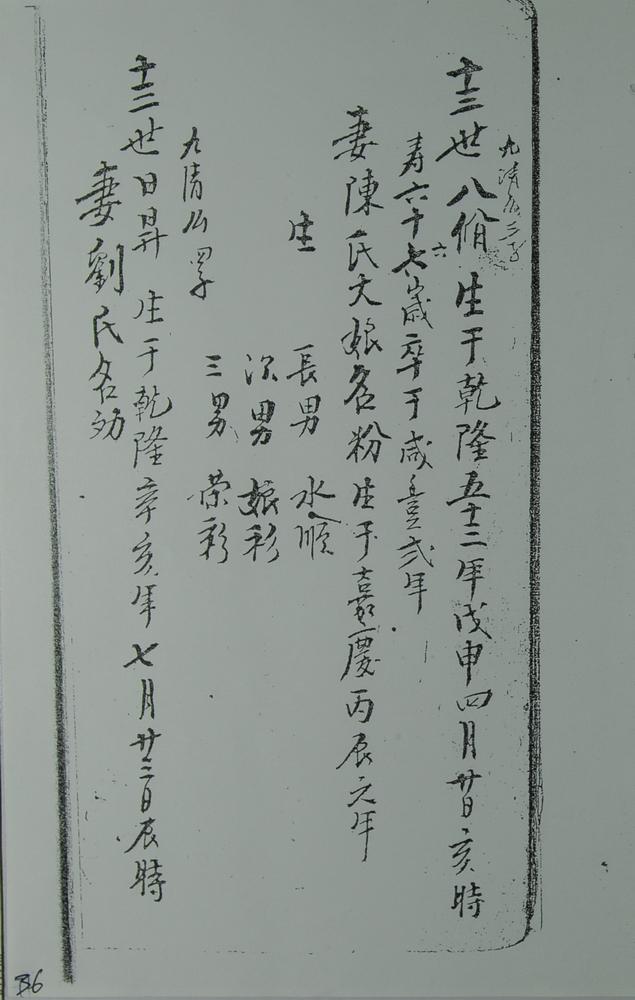 九清公三子
十三世八脩生于乾隆五十三年戊申四月廿日亥時
壽六十七六歲卒于咸豐弍年
妻陳氏大娘名粉生于嘉慶丙辰元年
生 長男 水順
次男 娘彩
三男 荣彩
九清公四子
十三世日昇 生于乾隆辛亥年七月廿三日辰時
妻劉氏名効
B6